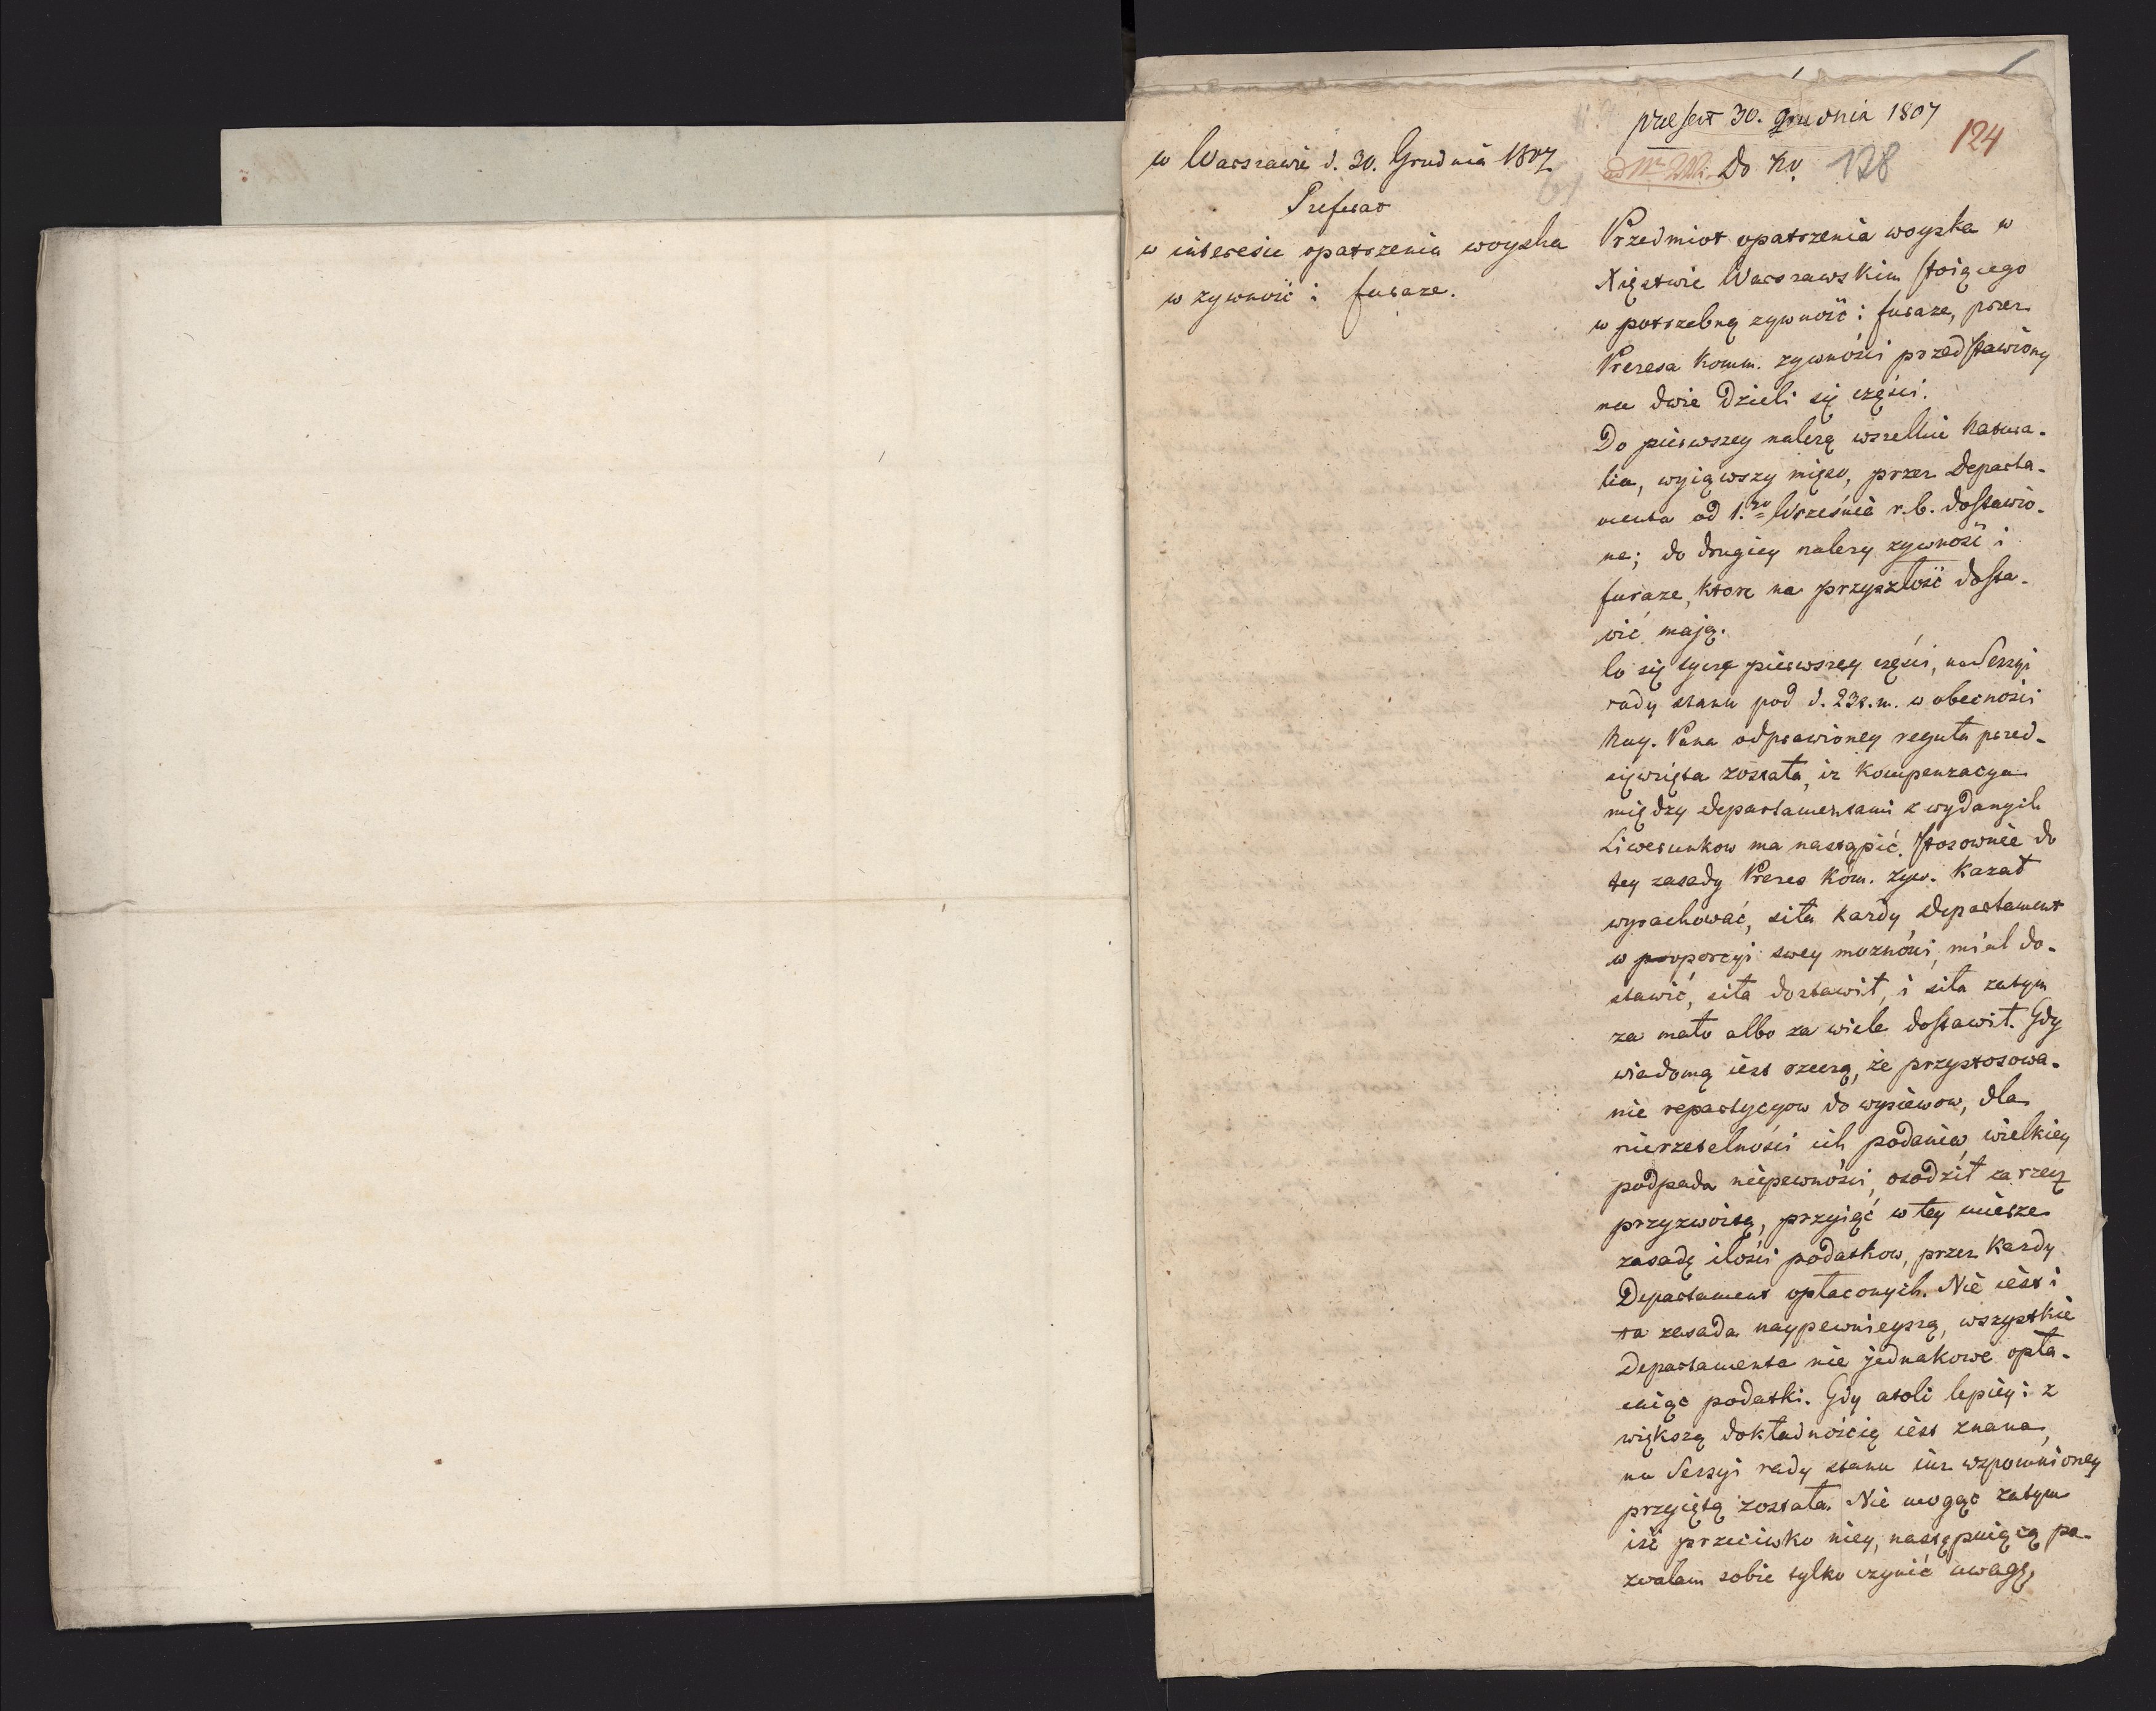 praesent 30. Grudnia 1807
124
Do No. 128
w Warszawie d. 30. Grudnia 1807
Referat
w interesie opatrzenia woyska
w zywność i furaze.
Przedmiot opatrzenia woyska w
Xięstwie Warszawskim stoiącego
w potrzebną zywność i furaze, przez
Prezesa Komm. zywności przedstawiony
na dwie dzieli się części.
Do pierwszey nalezą wszelkie Natura-
lia, wyiąwszy mięso, przez Departa-
menta od 1.go Września r. b. dostawio-
ne; do drugiey nalezy zywność i
furaze, ktore na przyszłość dosta-
wić mają.
Co się tycze pierwszey części, na Sessyi
rady stanu pod d. 23 t. m. w obecności
Nay. Pana odprawioney reguła przed-
sięwzięta została, iz kompenzacya
między departamentami z wydanych
Liwerunkow ma nastąpić. Stosownie do
tey zasady Prezes Kom. zyw. kazał
wyrachować, siła kazdy departament
w proporcyi swey mozności, miał do-
stawić, siła dostawił, i siła zatym
za mało albo za wiele dostawił. Gdy
wiadomą iest rzeczą, że przystosowa-
nie repartycyow do wysiewow, dla
nierzetelności ich podania, wielkiey
podpada niepewności, osądził za rzecz
przyzwoitą, przyiąć w tey mierze
zasadę ilości podatkow, przez kazdy
Departament opłaconych. Nie iest i
ta zasada naypewnieyszą, wszystkie
Departamenta nie jednakowe opła-
caiąc podatki. Gdy atoli lepiey i z
większą dokładnością iest znana,
na Sessyi rady stanu iuz wspomnioney
przyiętą została. Nie mogąc zatym
iść przeciwko niey, następuiącą po-
zwalam sobie tylko czynić uwagę,